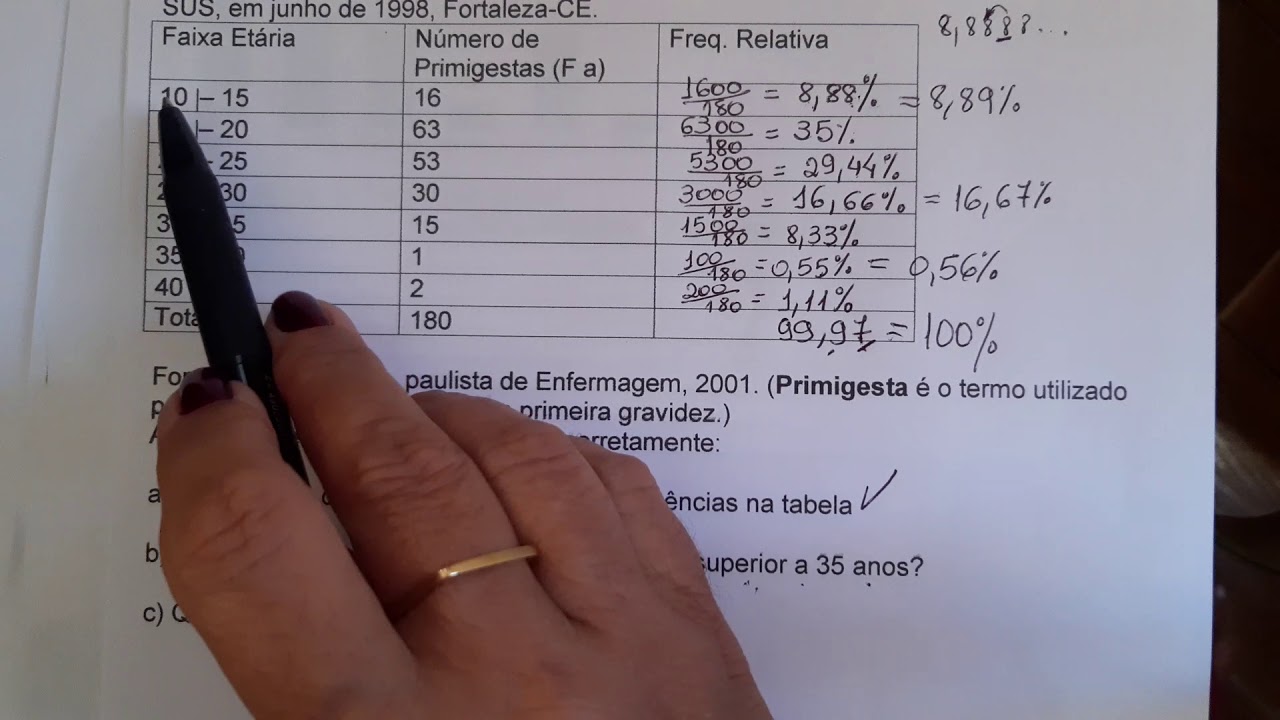 SUS, em junho de 1998, Fortaleza-CE.
8,8888...
Faixa Etária Número de Primigestas (F a) Freq. Relativa
10 |– 15 16 1600/180 = 8,88% = 8,89%
|– 20 63 6300/180 = 35%
– 25 53 5300/180 = 29,44%
30 30 3000/180 = 16,66% = 16,67%
15 1500/180 = 8,33%
35 1 100/180 = 0,55% = 0,56%
40 2 200/180 = 1,11%
180 99,97 = 100%
paulista de Enfermagem, 2001. (Primigesta é o termo utilizado
primeira gravidez.)
a
ências na tabela ✓
b)
superior a 35 anos?
c)